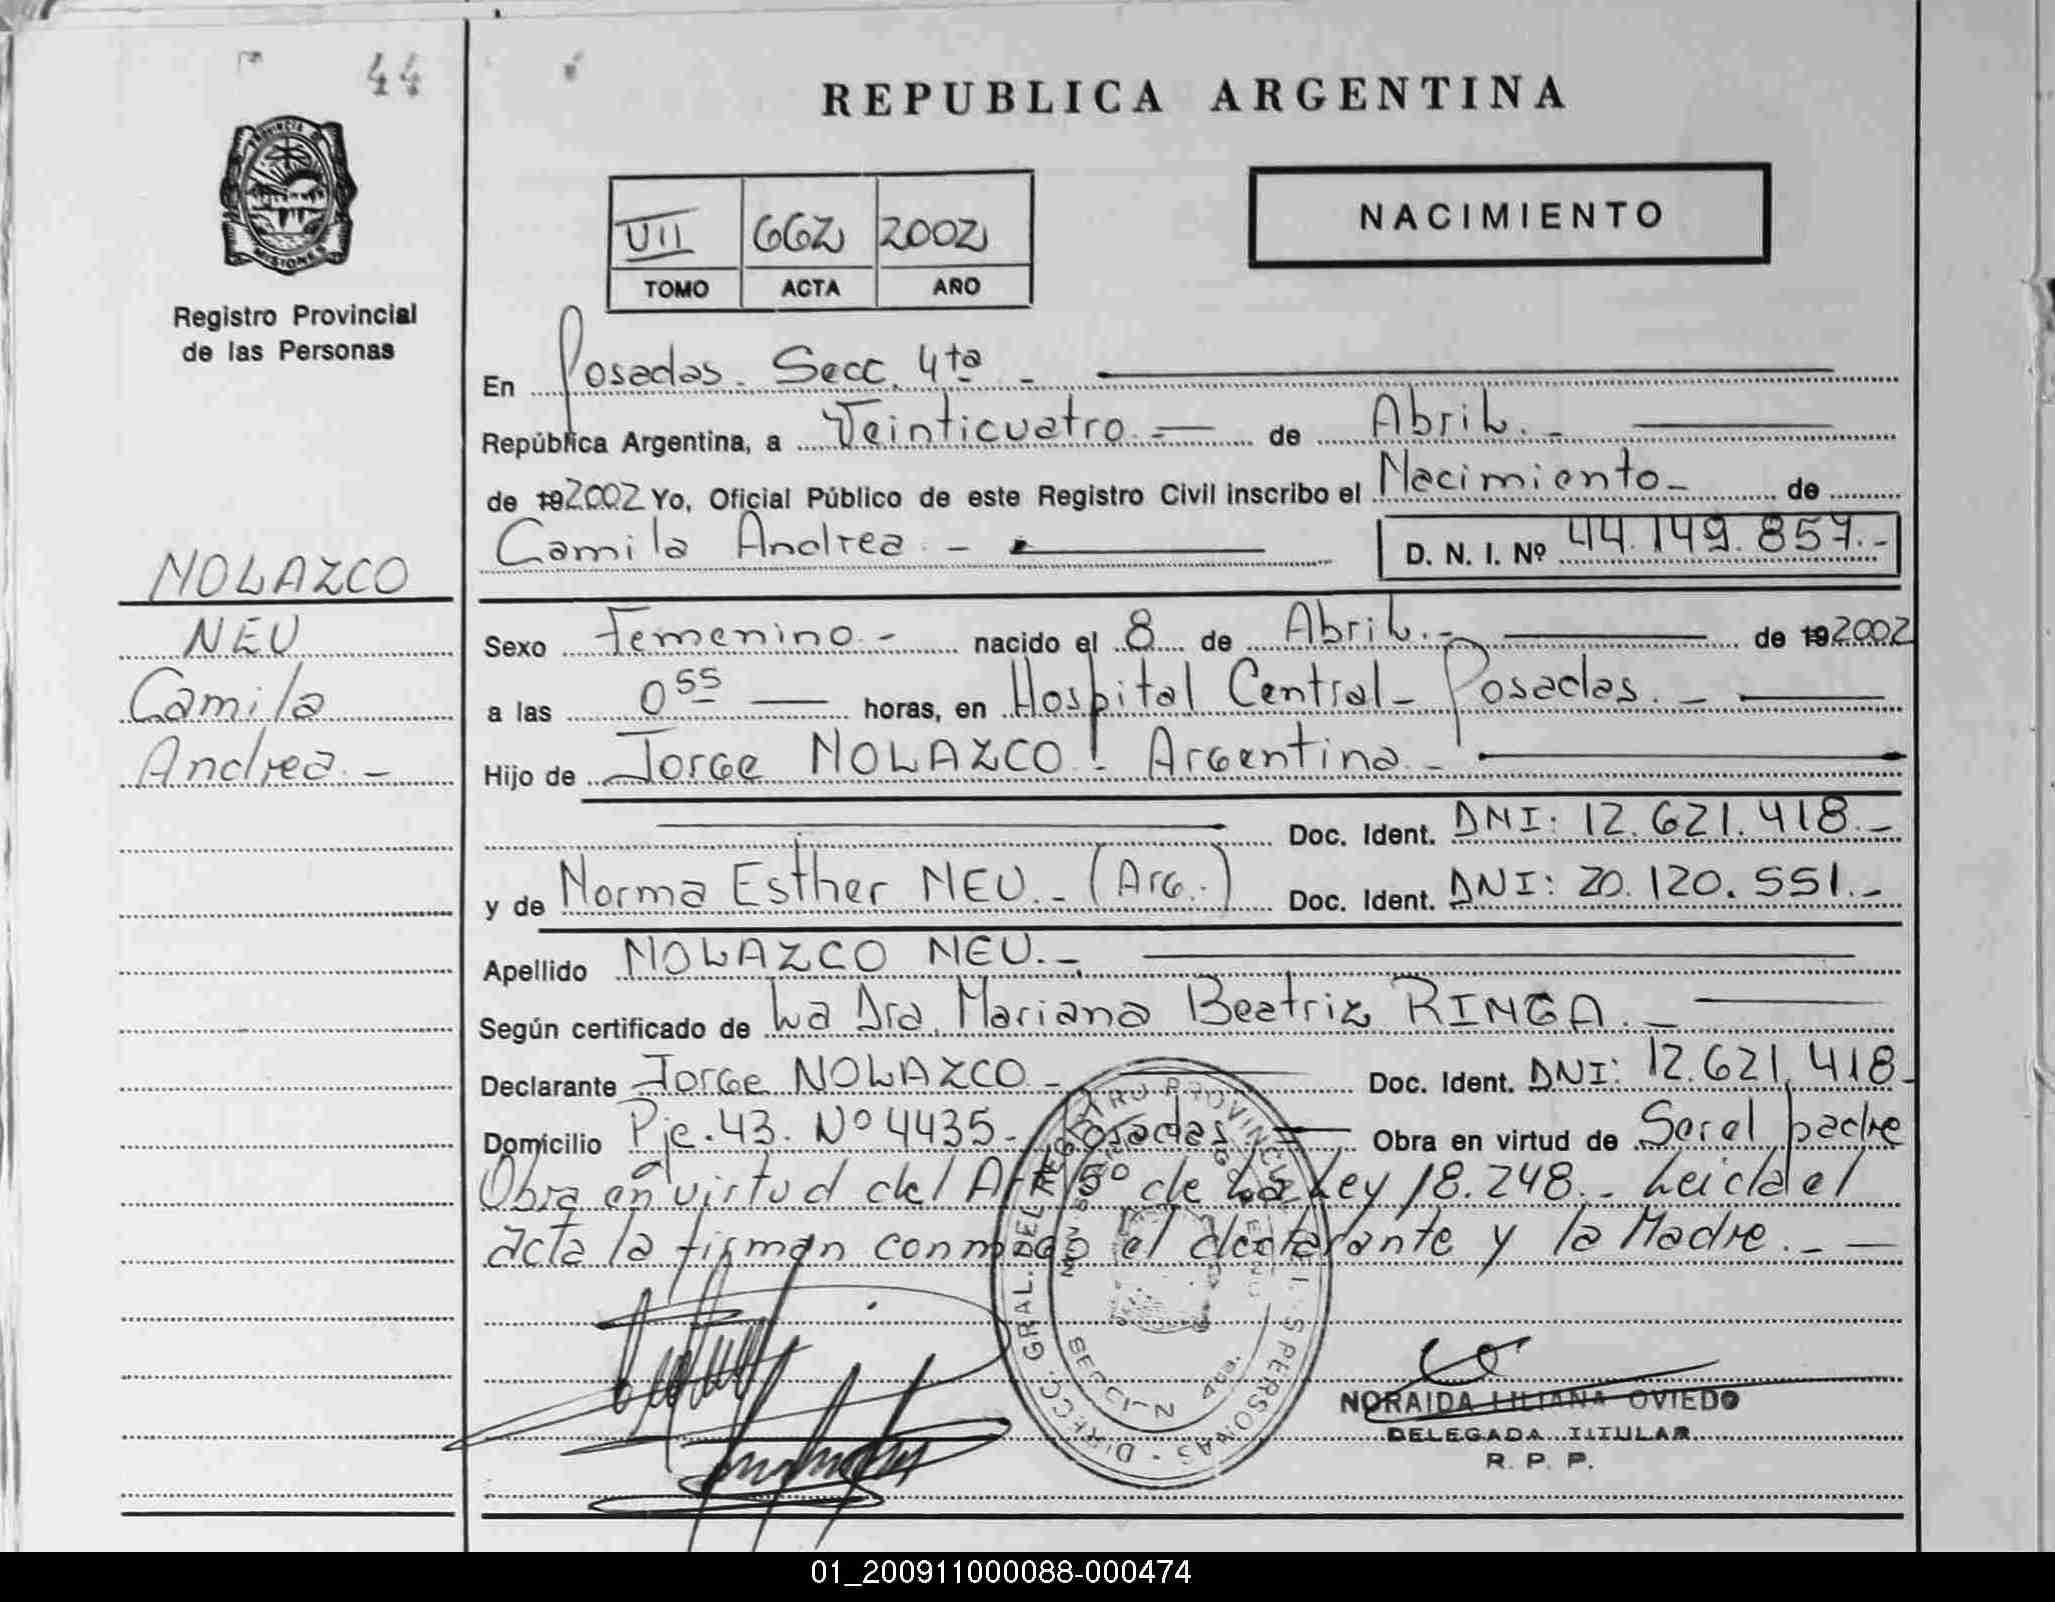 44
REPUBLICA ARGENTINA
PROVINCIA DE
MISIONES
VII 662 2002
TOMO ACTA AÑO
NACIMIENTO
Registro Provincial
de las Personas
En Posadas. Secc. 4ta -
República Argentina, a Veinticuatro. - de Abril. -
de 192002 Yo, Oficial Público de este Registro Civil inscribo el Nacimiento - de
Camila Andrea. - D. N. I. Nº 44.149.857.-
NOLAZCO
NEU
Camila
Andrea. -
Sexo Femenino. - nacido el 8 de Abril. - de 192002
a las 0 55 horas, en Hospital Central - Posadas. -
Hijo de Jorge NOLAZCO. Argentina. -
Doc. Ident. DNI: 12.621.418.-
y de Norma Esther NEU. - (Arg.) Doc. Ident. DNI: 20.120.551.-
Apellido NOLAZCO NEU. -
Según certificado de La Dra. Mariana Beatriz RINGA. -
Declarante Jorge NOLAZCO - Doc. Ident. DNI: 12.621.418-
Domicilio Pje. 43. Nº 4435. Posadas - Obra en virtud de Ser el padre
Obra en virtud del Art 5º de La Ley 18.248. - Leida el
acta la firman conmigo el declarante y la Madre. - -
DIRECC. GRAL. DEL REGISTRO PROVINCIAL PERSONAS
NORAIDA LILIANA OVIEDO
DELEGADA TITULAR
R. P. P.
01_200911000088-000474